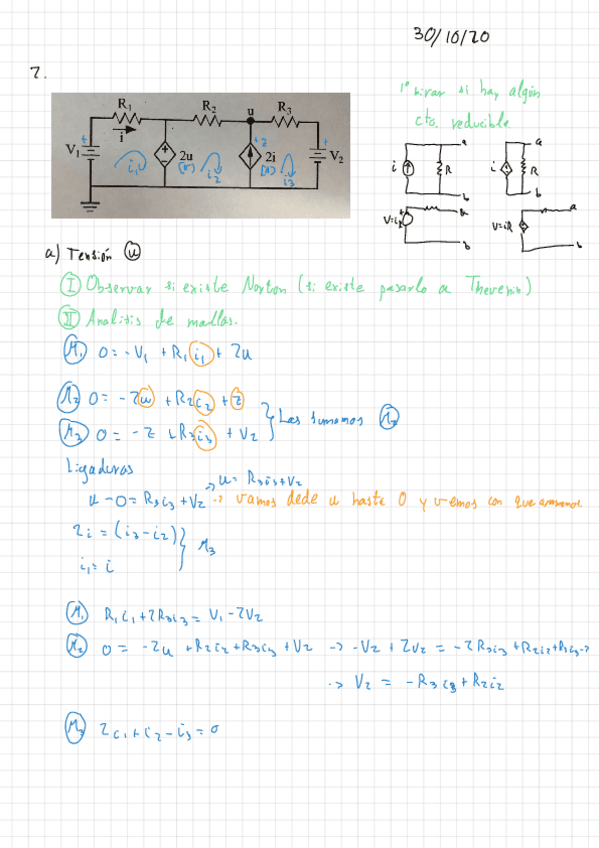 30/10/20
7.
1º mirar si hay algún
cto. reducible
R1 R2 u R3
i
V1 2u 2i V2
i1 (v) i2 z (A) i3
i R a b
i R a b
a b
V=iR a b
a) Tensión u
I Observar si existe Norton (si existe pasarlo a Thevenin)
II Analisis de mallas.
M1 0 = -V1 + R1 i1 + 2u
M2 0 = -2u + R2i2 + z
M3 0 = -z + R3i3 + V2
Las sumamos
Ligaduras
→ u = R3i3+V2
u - 0 = R3i3 + V2 → vamos dede u hasta 0 y vemos con que
2i = (i3-i2)
i1 = i
M3
M1 R1i1+2R3i3 = V1-2V2
M2 0 = -2u +R2i2+R3i3+V2 → -V2 + 2V2 = -2R3i3+R2i2+R3i3→
→ V2 = -R3i3+R2i2
M3 2i1+i2-i3=0